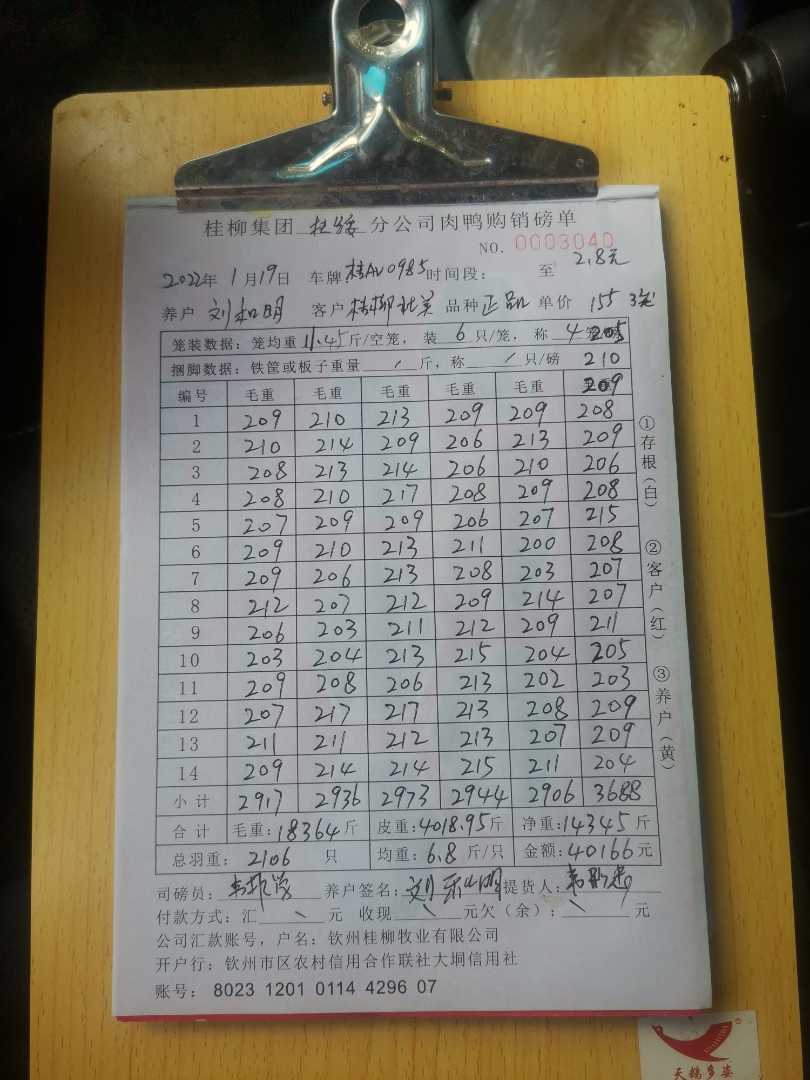 桂柳集团 分公司肉鸭购销磅单
NO. 0003040
2022年 1月19日 车牌 桂AV0985 时间段: 至 2.8元
养户 刘和明 客户 桂柳 品种 正品 单价 155 3元
笼装数据: 笼均重 11.45 斤/空笼, 装 6 只/笼, 称 4 205
捆脚数据: 铁筐或板子重量 / 斤, 称 / 只/磅 210
编号 毛重 毛重 毛重 毛重 毛重 209
1 209 210 213 209 209 208
2 210 214 209 206 213 209
3 208 213 214 206 210 206
4 208 210 217 208 209 208
5 207 209 209 206 207 215
6 209 210 213 211 200 208
7 209 206 213 208 203 207
8 212 207 212 209 214 207
9 206 203 211 212 209 211
10 203 204 213 215 204 205
11 209 208 206 213 202 203
12 207 217 217 213 208 209
13 211 211 212 213 207 209
14 209 214 214 215 211 204
小计 2917 2936 2973 2944 2906 3688
合计 毛重: 18364 斤 皮重: 4018.95 斤 净重: 14345 斤
总羽重: 2106 只 均重: 6.8 斤/只 金额: 40166 元
司磅员: 养户签名: 刘 明 提货人:
付款方式: 汇 \ 元 收现 \ 元欠(余): \ 元
公司汇款账号, 户名: 钦州桂柳牧业有限公司
开户行: 钦州市区农村信用合作联社大垌信用社
账号: 8023 1201 0114 4296 07
①存根(白)
②客户(红)
③养户(黄)
天鹅多姿